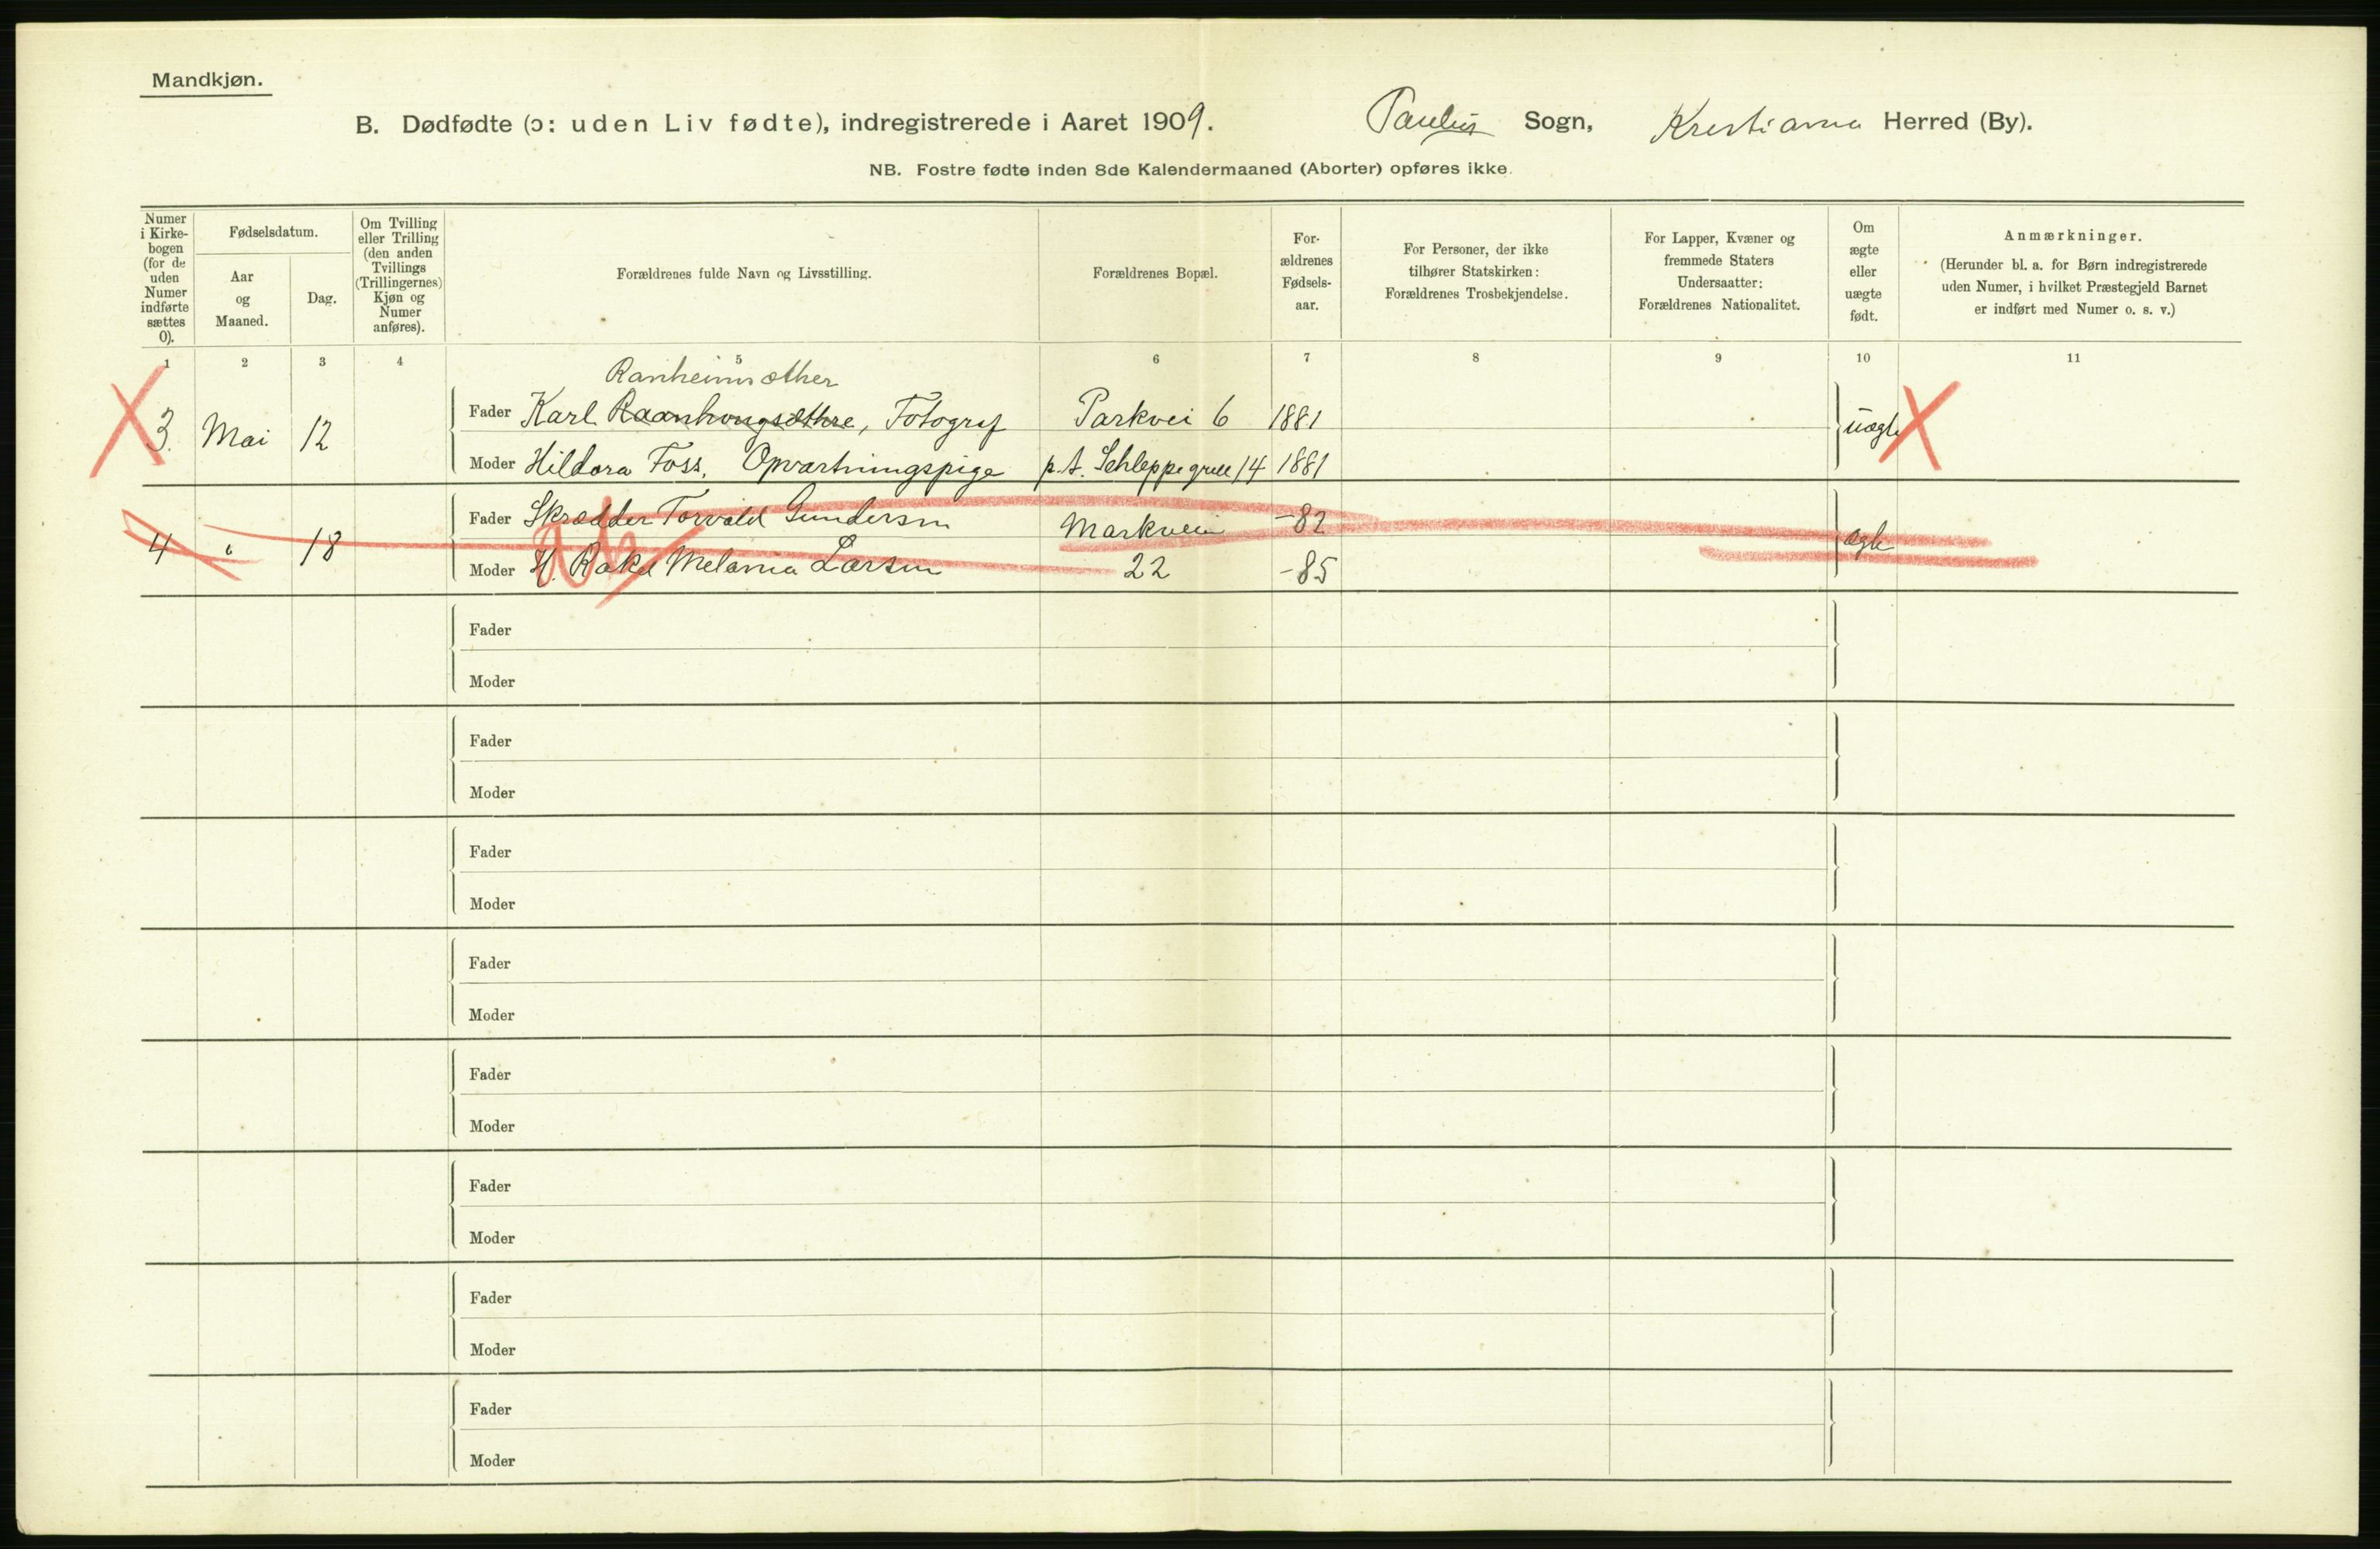 Mandkjøn.
B. Dødfødte (ɔ: uden Liv fødte), indregistrerede i Aaret 1909. Paulus Sogn, Kristiania Herred (By).
NB. Fostre fødte inden 8de Kalendermaaned (Aborter) opføres ikke.
Numer i Kirke-bogen (for de uden Numer indførte sættes 0).
Fødselsdatum.
Aar og Maaned.
Dag.
Om Tvilling eller Trilling (den anden Tvillings (Trillingernes) Kjøn og Numer anføres).
Forældrenes fulde Navn og Livsstilling.
Forældrenes Bopæl.
For-ældrenes Fødsels-aar.
For Personer, der ikke tilhører Statskirken: Forældrenes Trosbekjendelse.
For Lapper, Kvæner og fremmede Staters Undersaatter: Forældrenes Nationalitet.
Om ægte eller uægte født.
Anmærkninger.
(Herunder bl. a. for Børn indregistrerede uden Numer, i hvilket Præstegjeld Barnet er indført med Numer o. s. v.)
1 2 3 4 5 6 7 8 9 10 11
Ranheimsæther
3. Mai 12 Fader Karl Raanhougsæthre, Fotograf Parkvei 6 1881 uægte
Moder Hildora Foss, Opvartningspige p.t. Schleppegrell 14 1881
4 " 18 Fader Skrædder Torvald Gundersen Markveien -82 ægte
Moder H. Rakel Melania Larsen 22 -85
Fader
Moder
Fader
Moder
Fader
Moder
Fader
Moder
Fader
Moder
Fader
Moder
Fader
Moder
Fader
Moder